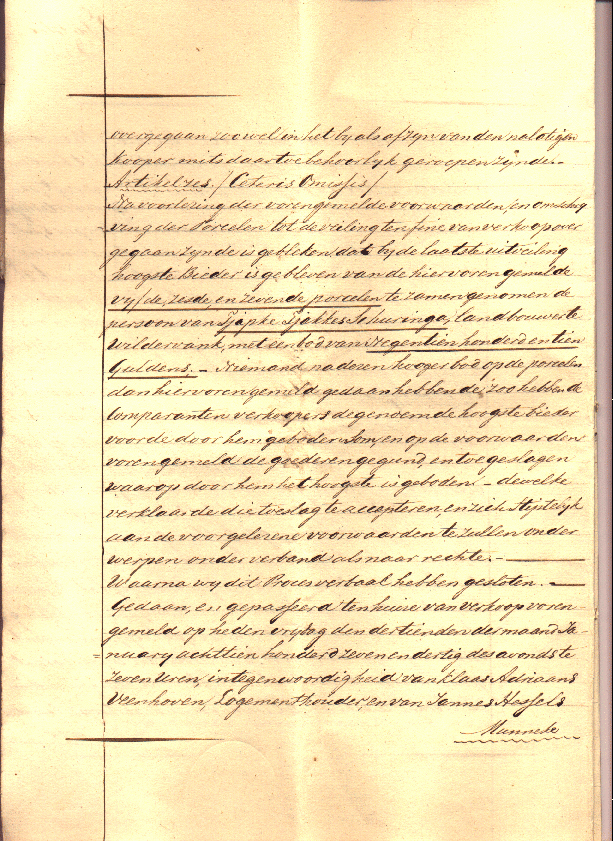 overgegaan zoowel in het by als afzyn van den nalatigen
kooper mits daartoe behoorlyk geroepen zynde. -
Artikel zes / Ceteris Omissis /
Na voorlezing der vorengemelde voorwaarden, en omschry
ving der Percelen tot de veiling ten fine van verkoop over
gegaan zynde is gebleken, dat by de laatste uitveiling
hoogste Bieder is gebleven van de hier voren gemelde
vyfde, zesde, en zevende percelen te zamengenomen de
persoon van Tjapke Tjakkes Schuringa, landbouwer te
Wildervank, met een bod van Negentienhonderd en tien
Guldens. - Niemand nader en hooger bod op de percelen
dan hier voren gemeld gedaan hebbende, zoo hebben de
Comparanten verkoopers de genoemde hoogste bieder
voor de door hem geboden Som, en op de voorwaarden
vorengemeld de goederen gegund, en toegeslagen
waarop door hem het hoogste is geboden. - dewelke
verklaarde die toeslag te accepteren, en zich stiptelyk
aan de voorgelezene voorwaarden te zullen onder
werpen onder verband als naar rechte. -
Waarna wy dit Proces verbaal hebben gesloten. -
Gedaan, en gepasseerd ten huize van verkoop voren-
gemeld op heden vrydag den dertienden der maand Ja-
nuary achttien honderd zeven en dertig des avonds te
zeven Uren, in tegenwoordigheid van Klaas Adriaans
Veenhoven, Logementhouder, en van Jannes Hessels
Mannede